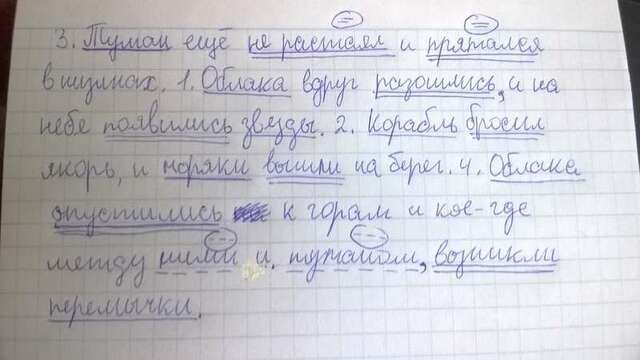 3. Туман ещё не растаял и прятался
в шумах. 1. Облака вдруг разошлись, и на
небе появились звезды. 2. Корабль бросил
якорь, и моряки вышли на берег. 4. Облака
опустились к горам и кое-где
между ними и туманом, возникли
перемычки.